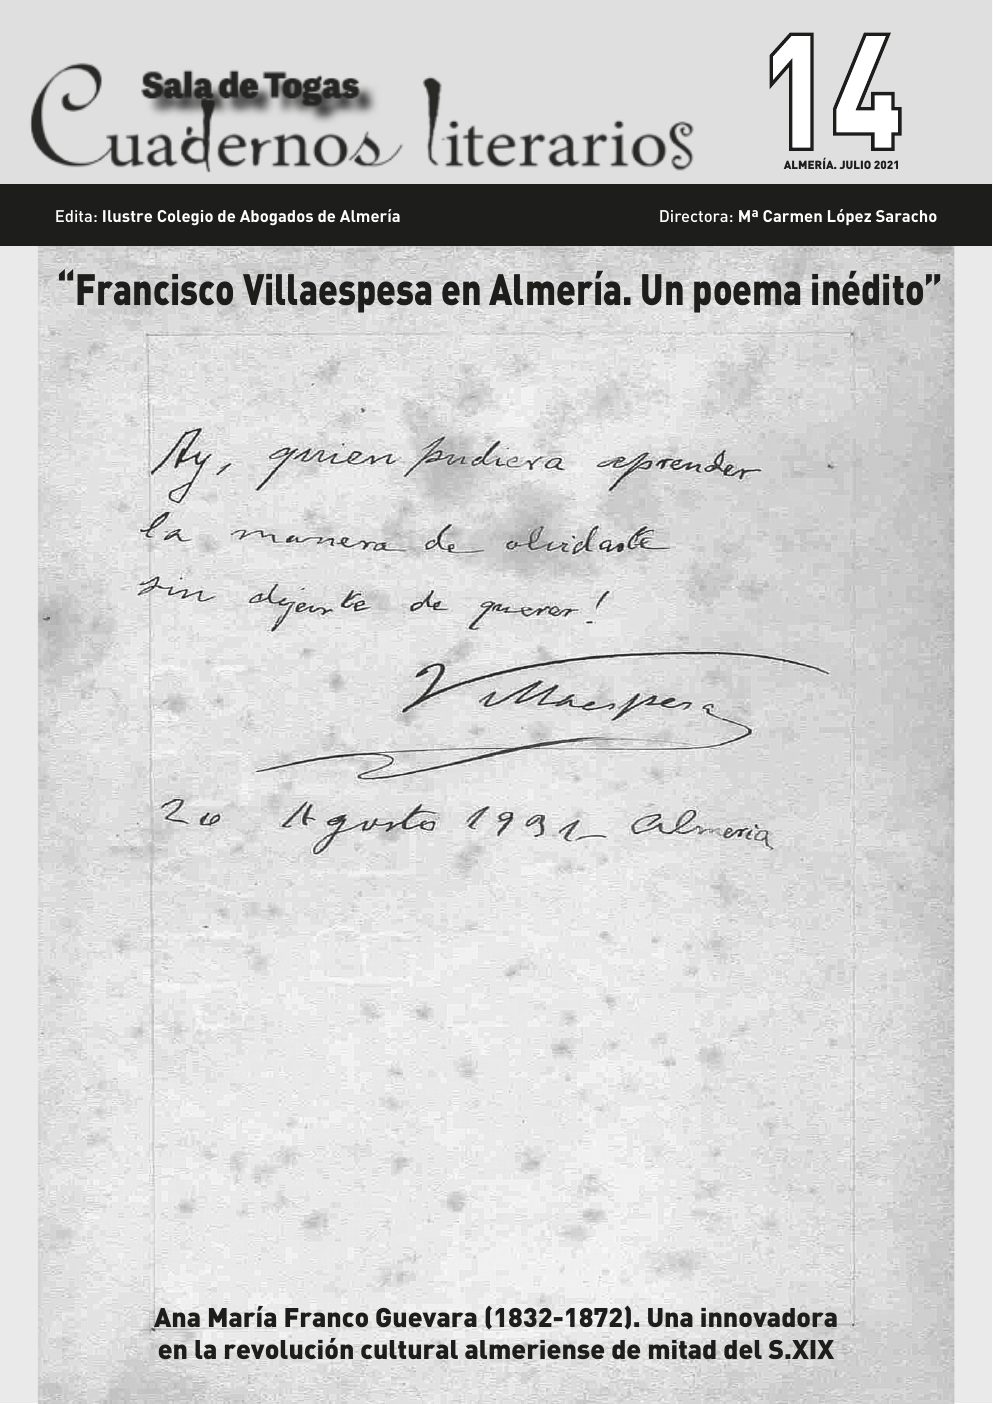 Sala de Togas
Cuadernos literarios
14
ALMERÍA. JULIO 2021
Edita: Ilustre Colegio de Abogados de Almería
Directora: Mª Carmen López Saracho
“Francisco Villaespesa en Almería. Un poema inédito”
Ay, quien pudiera aprender
la manera de olvidarte
sin dejarte de querer!
Villaespesa
Agosto 1931 Almeria
Ana María Franco Guevara (1832-1872). Una innovadora
en la revolución cultural almeriense de mitad del S.XIX